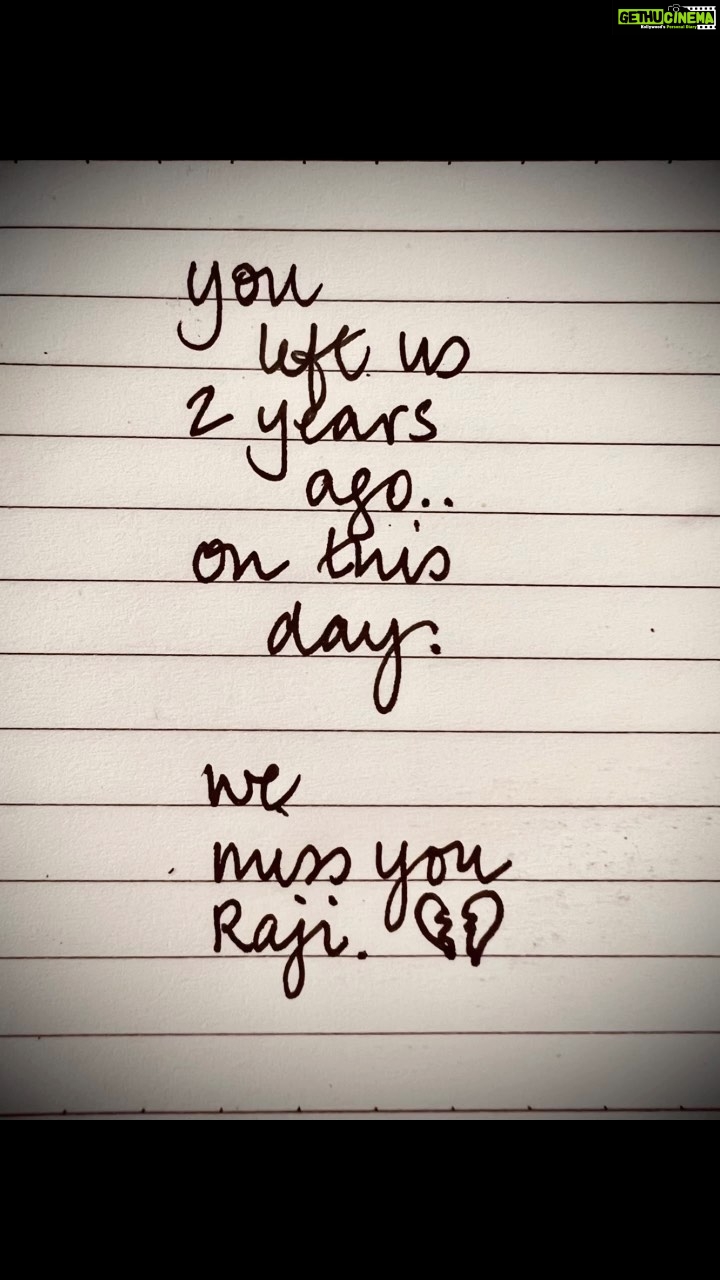 GETHUCINEMA
Kollywood's Personal Diary
you
left us
2 years
ago..
on this
day.
we
miss you
Raji. 💔